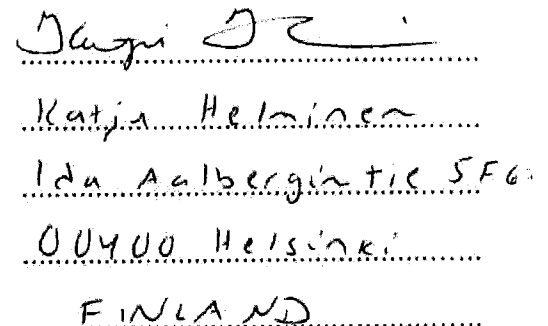 Katja Helminen
Ida Aalbergintie 5F6
00400 Helsinki
FINLAND